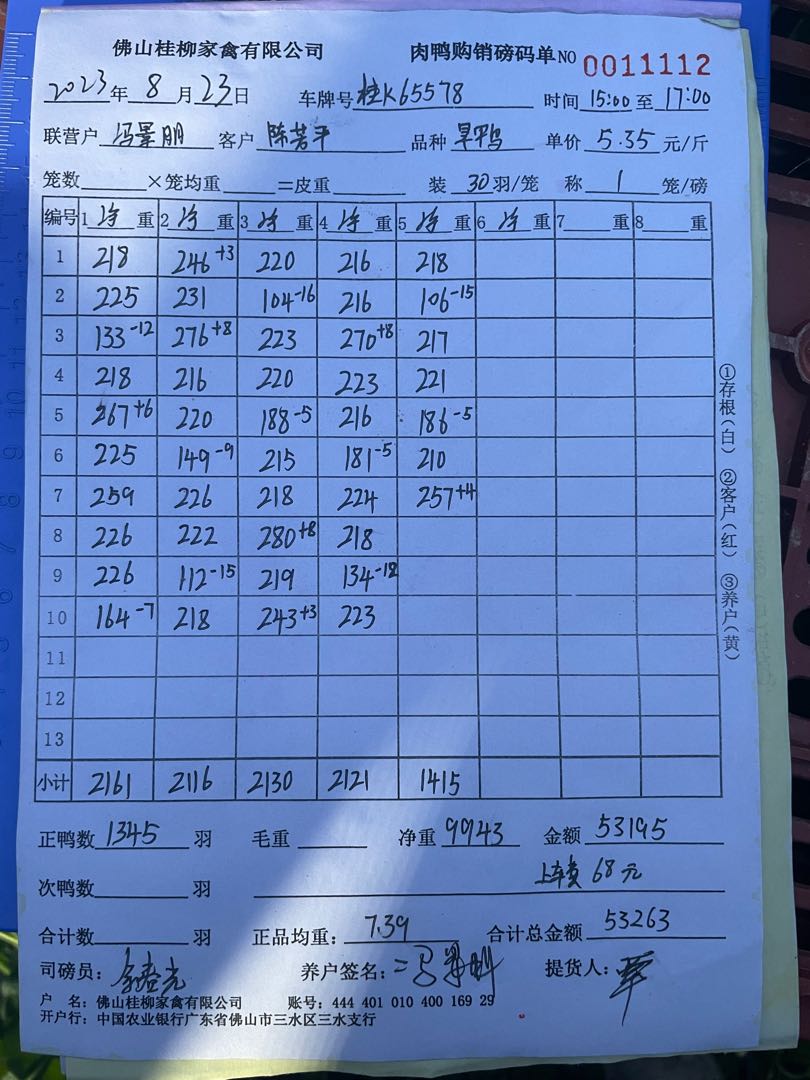 佛山桂柳家禽有限公司 肉鸭购销磅码单 NO 0011112
2023年 8月23日 车牌号 桂K65578 时间 15:00 至 17:00
联营户 冯景朋 客户 陈芳平 品种 旱鸭 单价 5.35 元/斤
笼数 ×笼均重 =皮重 装 30 羽/笼 称 1 笼/磅
编号 1 净 重 2 净 重 3 净 重 4 净 重 5 净 重 6 净 重 7 重 8 重
1 218 246+3 220 216 218
2 225 231 104-16 216 106-15
3 133-12 276+8 223 270+8 217
4 218 216 220 223 221
5 267+6 220 188-5 216 186-5
6 225 149-9 215 181-5 210
7 259 226 218 224 257+4
8 226 222 280+8 218
9 226 112-15 219 134-12
10 164-7 218 243+3 223
11
12
13
小计 2161 2116 2130 2121 1415
①存根(白) ②客户(红) ③养户(黄)
正鸭数 1345 羽 毛重 净重 9943 金额 53195
次鸭数 羽 上车费 68元
合计数 羽 正品均重: 7.39 合计总金额 53263
司磅员: 养户签名: 提货人:
户 名: 佛山桂柳家禽有限公司 账号: 444 401 010 400 169 29
开户行: 中国农业银行广东省佛山市三水区三水支行